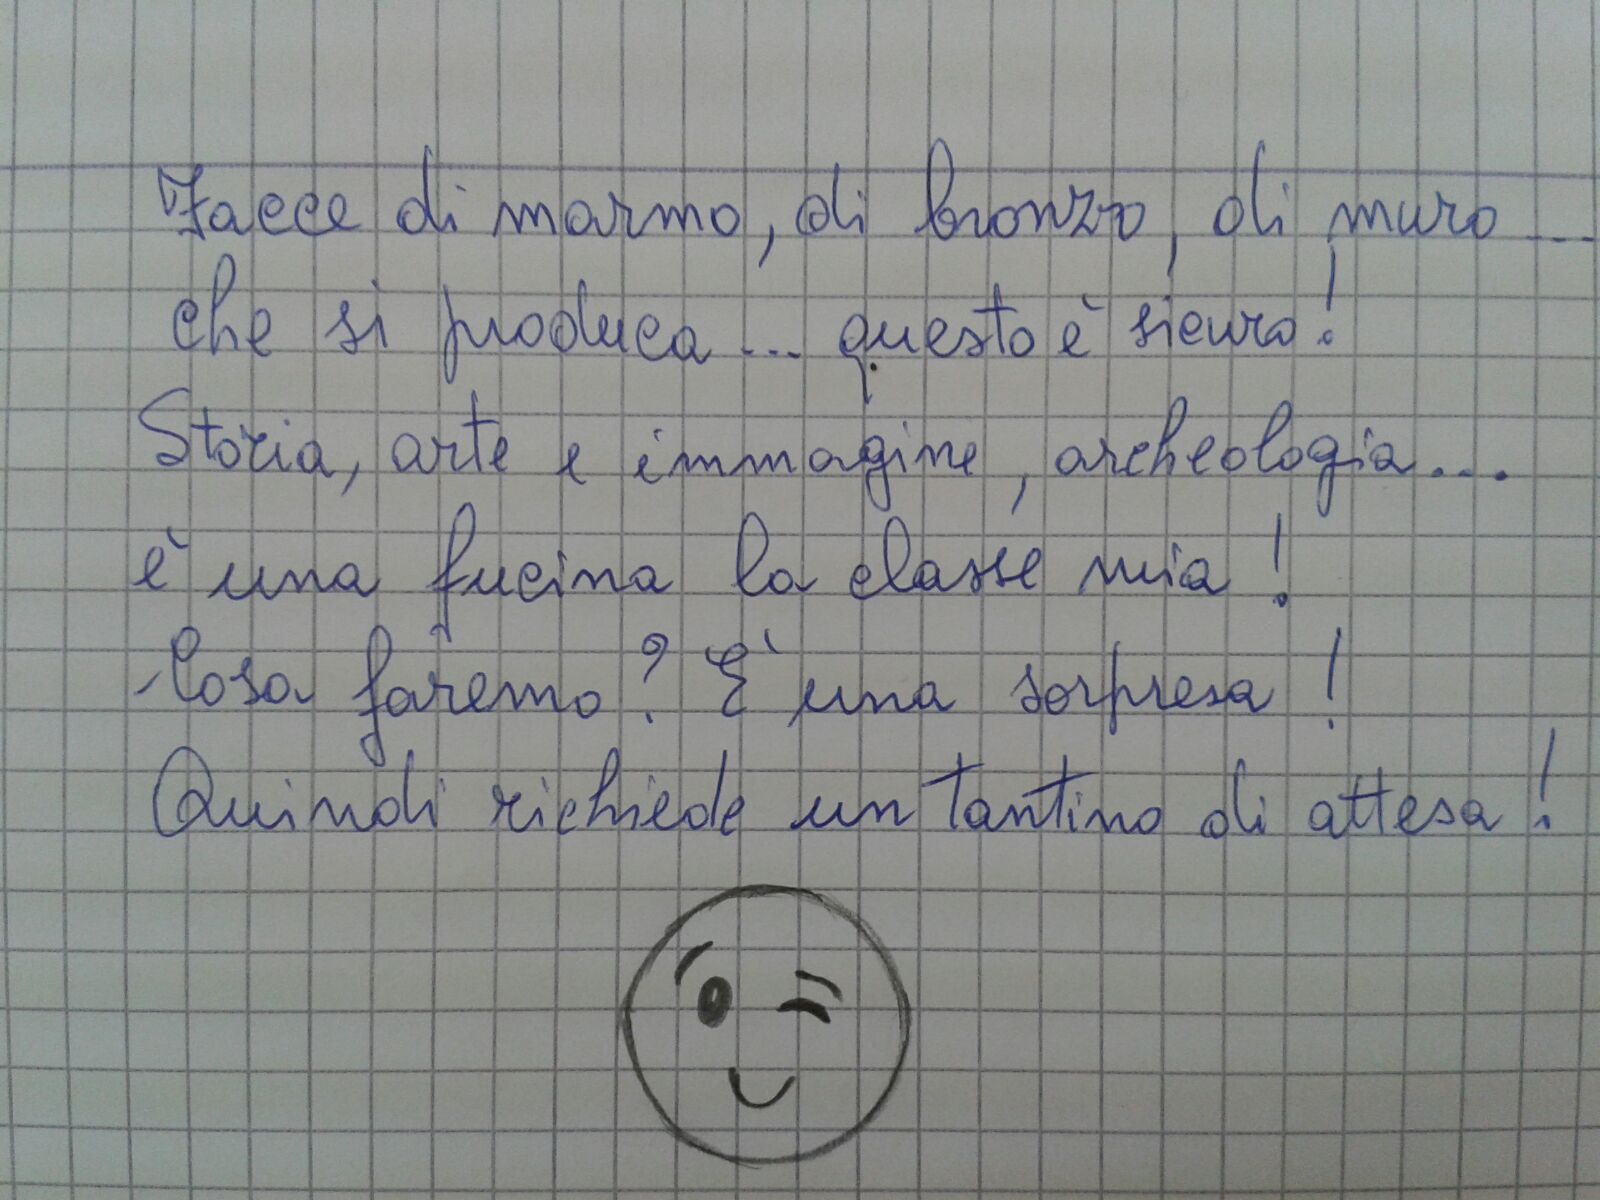 Facce di marmo, di bronzo, di muro...
che si produca... questo è sicuro!
Storia, arte e immagine, archeologia...
è una fucina la classe mia!
Cosa faremo? È una sorpresa!
Quindi richiede un tantino di attesa!